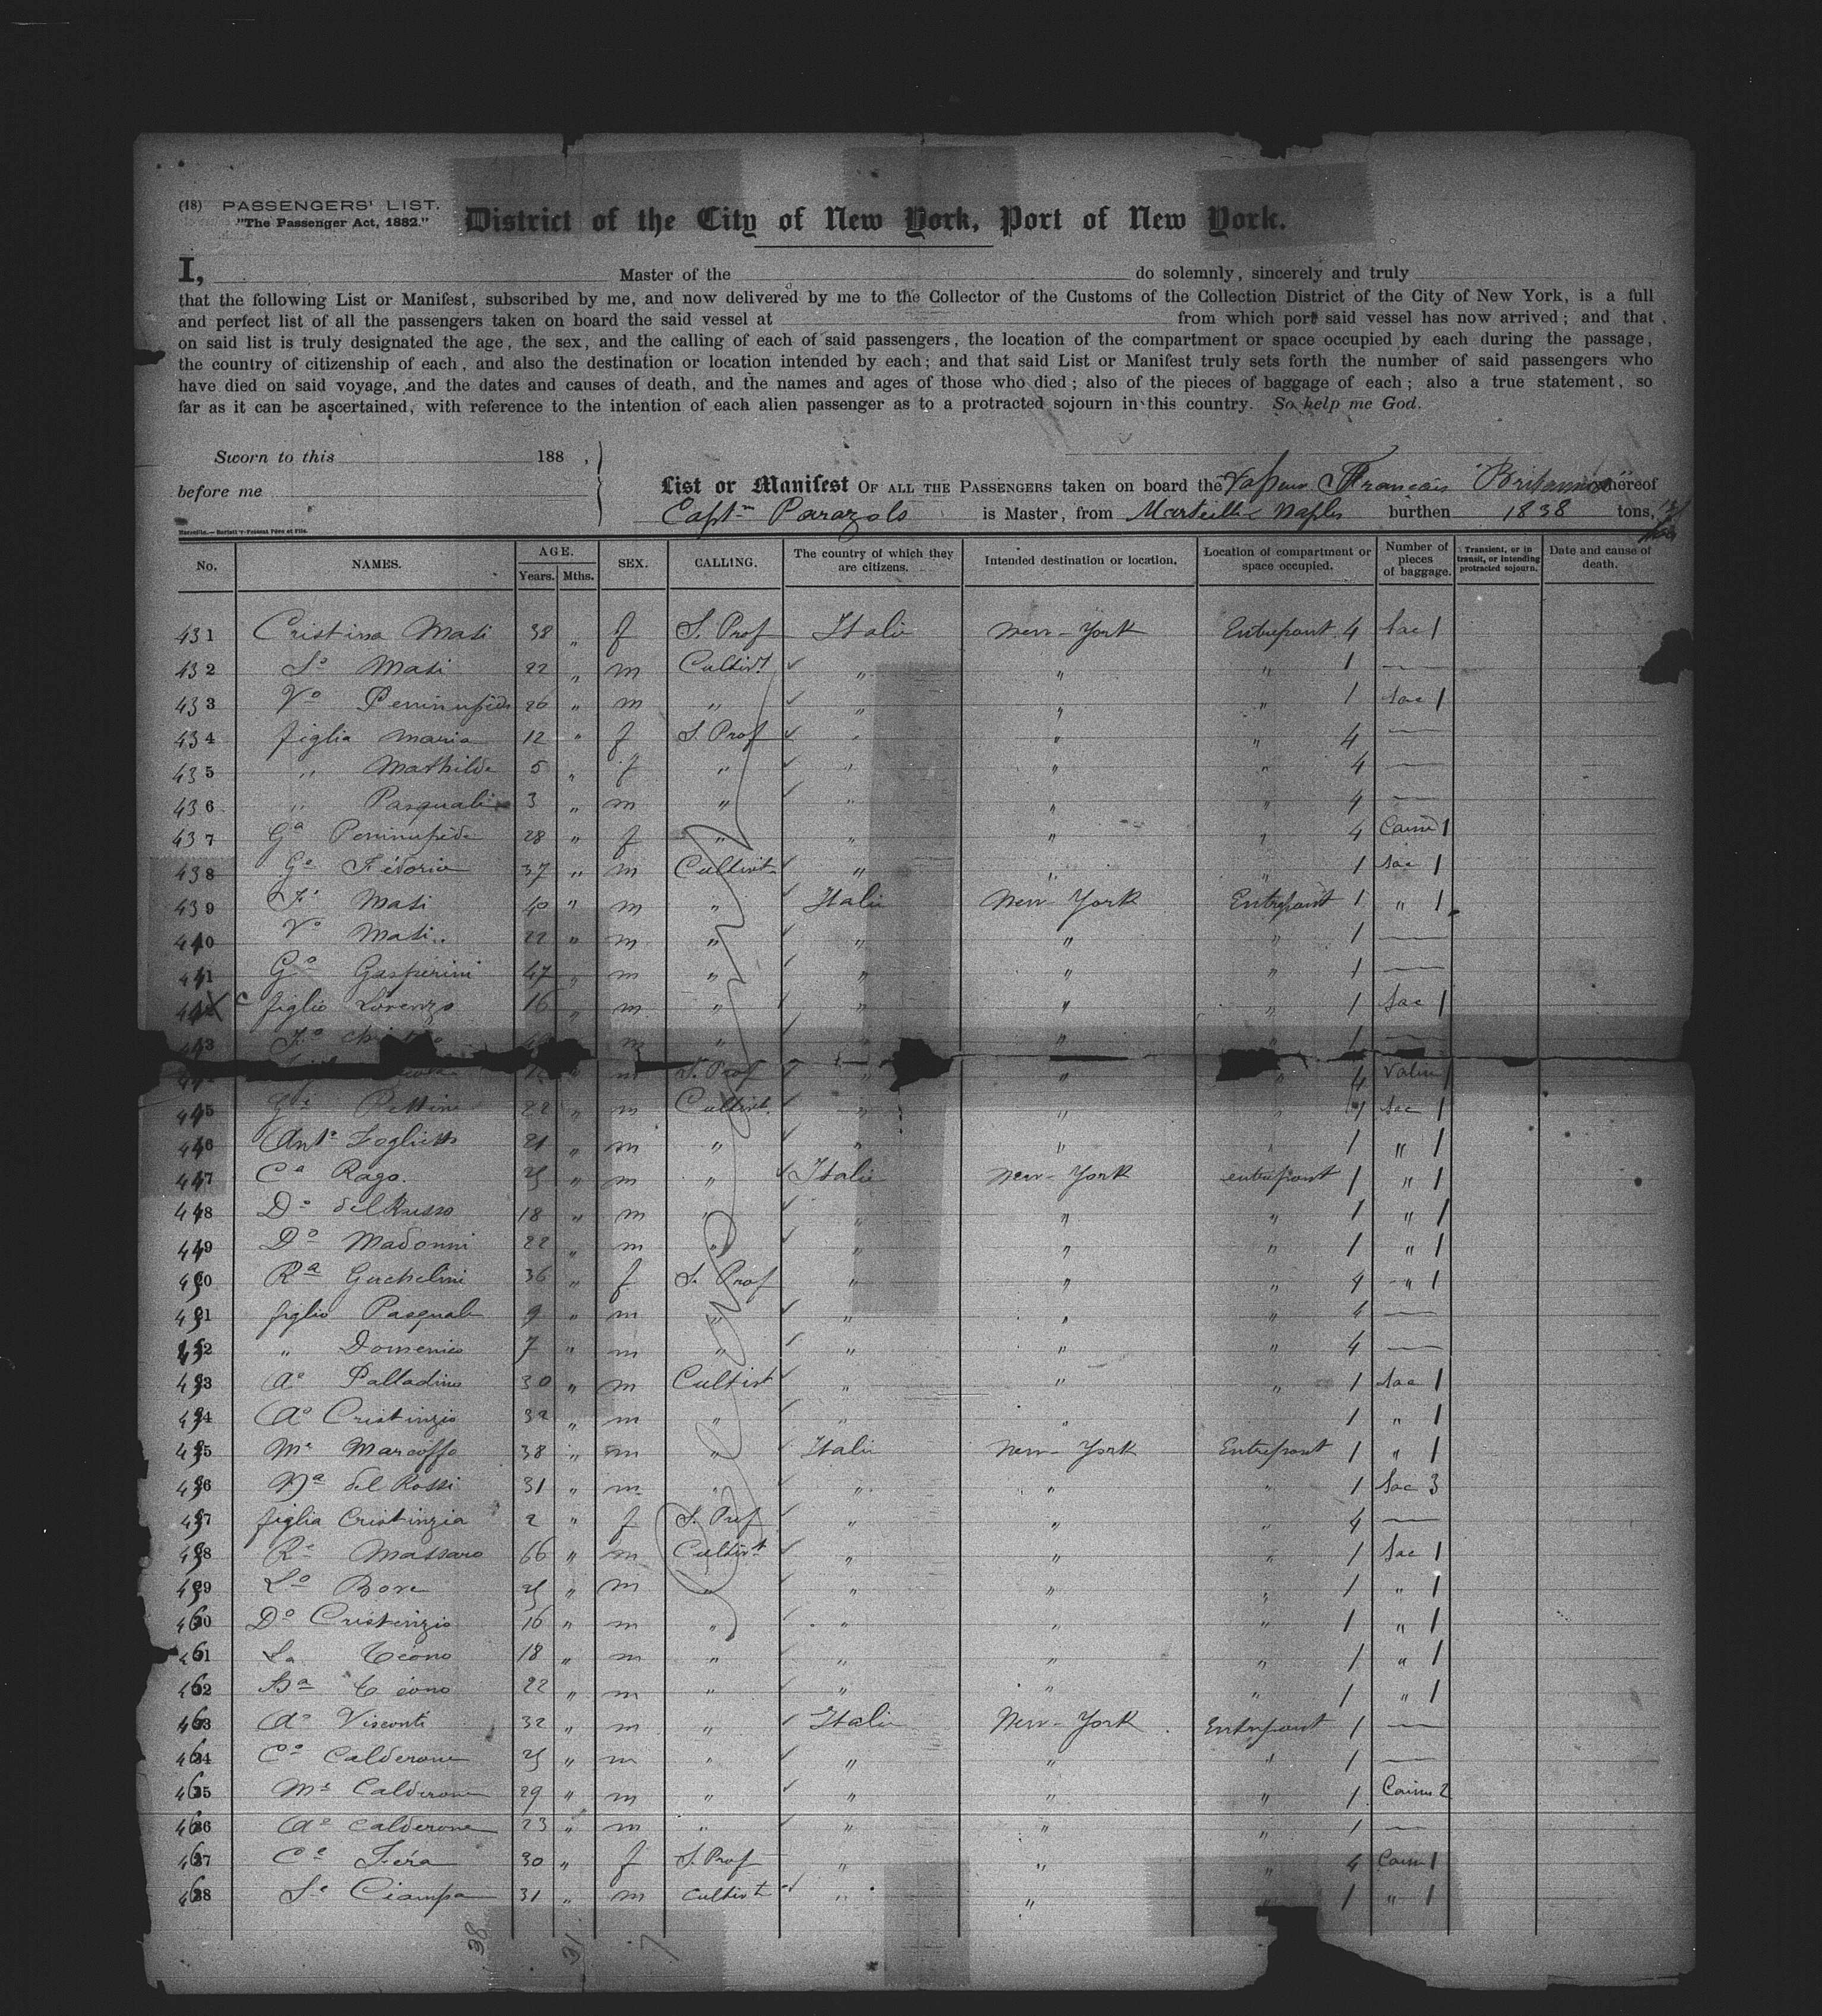 (18) PASSENGERS' LIST.
"The Passenger Act, 1882."
District of the City of New York, Port of New York.
I, Master of the do solemnly, sincerely and truly
that the following List or Manifest, subscribed by me, and now delivered by me to the Collector of the Customs of the Collection District of the City of New York, is a full
and perfect list of all the passengers taken on board the said vessel at from which port said vessel has now arrived; and that
on said list is truly designated the age, the sex, and the calling of each of said passengers, the location of the compartment or space occupied by each during the passage,
the country of citizenship of each, and also the destination or location intended by each; and that said List or Manifest truly sets forth the number of said passengers who
have died on said voyage, and the dates and causes of death, and the names and ages of those who died; also of the pieces of baggage of each; also a true statement, so
far as it can be ascertained, with reference to the intention of each alien passenger as to a protracted sojourn in this country. So help me God.
Sworn to this 188 ,
before me
List or Manifest OF ALL THE PASSENGERS taken on board the Vapeur Français "Britannia" whereof
Captn Parazols is Master, from Marseille Naples burthen 1838 tons,
No. NAMES. AGE. Years. Mths. SEX. CALLING. The country of which they are citizens. Intended destination or location. Location of compartment or space occupied. Number of pieces of baggage. Transient, or in transit, or intending protracted sojourn. Date and cause of death.
431 Cristina Masi 38 " f S. Prof Italie New-York Entrepont 4 Sac 1
432 So Masi 22 " m Cultivt " " " 1 —
433 Vo 26 " m " " " " 1 Sac 1
434 figlia Maria 12 " f S. Prof " " " 4 —
435 " Mathilde 5 " f " " " " 4 —
436 " Pasquale 3 " m " " " " 4 —
437 Ga 28 " f " " " " 4 1
438 Go 37 " m Cultivt " " " 1 Sac 1
439 Masi 40 " m " Italie New York Entrepont 1 " 1
440 Vo Masi 22 " m " " " " 1 —
441 Go Gasperini 47 " m " " " " 1 —
figlio Lorenzo 16 " m " " " " 1 Sac 1
m " " " " 1 —
m S. Prof " " " 4 1
445 22 " m Cultivt " " " 1 Sac 1
446 Anto 21 " m " " " " 1 " 1
447 Ca Rago. 25 " m " Italie New-York entrepont 1 " 1
448 Do del Russo 18 " m " " " " 1 " 1
449 Do Madonni 22 " m " " " " 1 " 1
450 Ra 36 " f S. Prof " " " 4 " 1
451 figlio Pasquale 9 " m " " " " 4 —
452 " Domenico 7 " m " " " " 4 —
453 Ao Palladino 30 " m Cultivt " " " 1 Sac 1
454 Ao Cristinzio 32 " m " " " " 1 " 1
455 Mo 38 " m " Italie New-York Entrepont 1 " 1
456 del Rossi 31 " m " " " " 1 Sac 3
457 figlia Cristinzia 2 " f S. Prof " " " 4 —
458 Ro Massaro 66 " m Cultivt " " " 1 Sac 1
459 Lo Bove 25 " m " " " " 1 " 1
460 Do Cristinzio 16 " m " " " " 1 " 1
461 18 " m " " " " 1 " 1
462 22 " m " " " " 1 " 1
463 Ao Visconti 32 " m " Italie New-York Entrepont 1 —
464 Co Calderone 25 " m " " " " 1 —
465 Mo Calderone 29 " m " " " " 1 2
466 Ao Calderone 23 " m " " " " 1 —
467 Ca Fera 30 " f S. Prof " " " 4 1
468 So Ciampa 31 " m Cultivt " " " 1 " 1
38 31 7